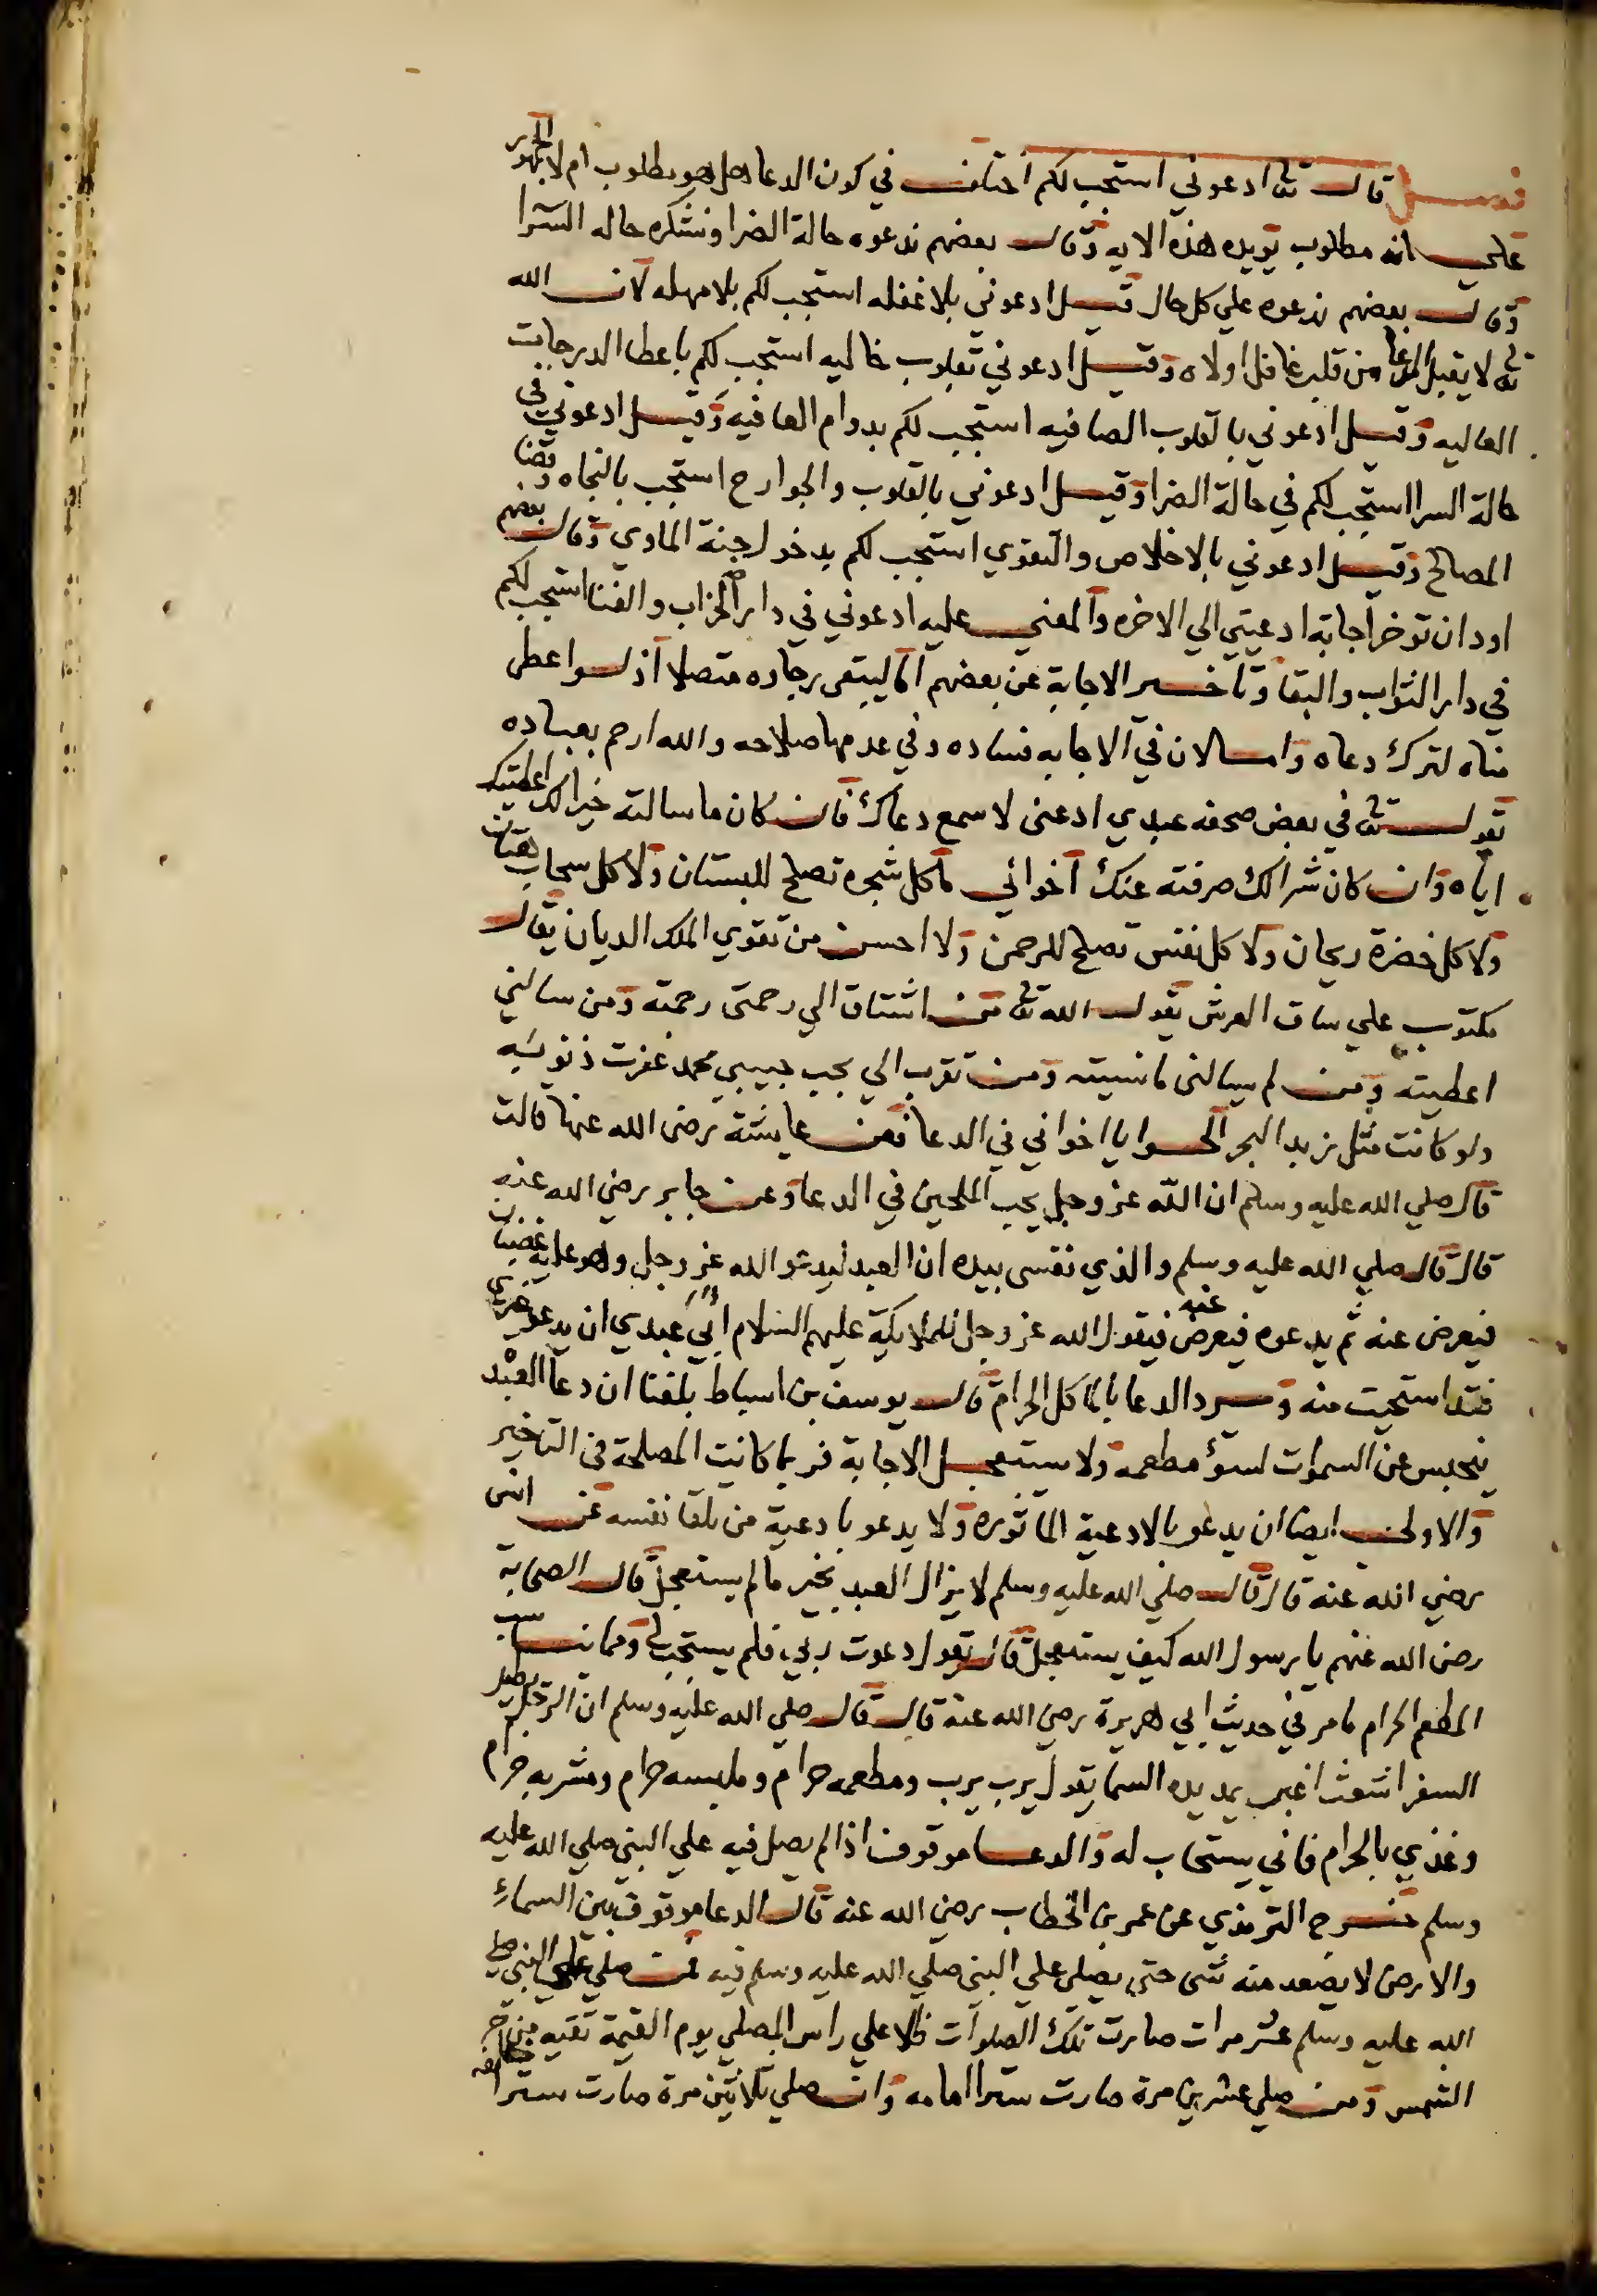 فصل قال تعالى ادعوني استجب لكم اختلف في كون الدعا هل هو مطلوب ام لا الجمهور
على انه مطلوب تويده هذه الايه وقال بعضهم ندعوه حالة الضرا ونشكره حاله السرا
وقال بعضهم ندعوه علي كل حال قيل ادعوني بلا غفله استجب لكم بلا مهله لان الله
تعالى لا يقبل الدعا من قلب غافل اولاه وقيل ادعوني بقلوب خاليه استجب لكم باعطا الدرجات
العاليه وقيل ادعوني بالقلوب الصافيه استجب لكم بدوام العافيه وقيل ادعوني في
حالة السرا استجب لكم في حالة الضرا وقيل ادعوني بالقلوب والجوارح استجب بالنجاه وقضا
المصالح وقيل ادعوني بالاخلاص والتقوي استجب لكم بدخول جنة الماوي وقال بعضهم
اود ان توخر اجابة ادعيتي الي الاخره والمعنى عليه ادعوني في دار الخراب والفنا استجب لكم
في دار الثواب والبقا وتاخير الاجابة عن بعضهم اما ليبقى رجاوه متصلا اذ لو اعطى
مناه لترك دعاه واما لان في الاجابه فساده وفي عدمها صلاحه والله ارحم بعباده
يقول تعالى في بعض صحفه عبدي ادعنى لاسمع دعاك فان كان ما سالته خيرا لك اعطيتك
اياه وان كان شرا لك صرفته عنك اخواني ما كل شجره تصلح للبستان ولا كل سحاب هتان
ولا كل خضرة ريحان ولا كل نفس تصلح للرحمن ولا احسن من تقوي الملك الديان يقال
مكتوب علي ساق العرش يقول الله تعالى من اشتاق الي رحمتى رحمته ومن سالني
اعطيته ومن لم يسالنى ما نسيته ومن تقرب الي بحب حبيبي محمد غفرت ذنوبه
ولو كانت مثل زبد البحر الحوا يا اخواني في الدعا فعن عايشة رضى الله عنها قالت
قال صلي الله عليه وسلم ان الله عز وجل يحب الملحين في الدعا وعن جابر رضي الله عنه
قال قال صلي الله عليه وسلم والذي نفسى بيده ان العبد ليدعو الله عز وجل وهو عليه غضبان
فيعرض عنه ثم يدعوه فيعرض عنه فيقول الله عز وجل للملايكة عليهم السلام ابي عبدي ان يدعو غيري
فقد استحيت منه ويرد الدعا باكل الحرام قال يوسف بن اسباط بلغنا ان دعا العبد
ينحبس عن السموات لسوء مطعمه ولا يستعجل الاجابة فربما كانت المصلحة في التاخير
والاولى ايضا ان يدعو بالادعية الماثوره ولا يدعو بادعية من تلقا نفسه عن انس
رضي الله عنه قال قال صلي الله عليه وسلم لا يزال العبد بخير ما لم يستعجل قال الصحابة
رضى الله عنهم يا رسول الله كيف يستعجل قال يقول دعوت ربي فلم يستجب لي ومما نسب
المطعم الحرام ما مر في حديث ابي هريرة رضي الله عنه قال قال صلي الله عليه وسلم ان الرجل يطيل
السفر اشعث اغبر يمد يده السما يقول يرب يرب ومطعمه حرام وملبسه حرام ومشربه حرام
وغذي بالحرام فاني يستجاب له والدعا موقوف اذا لم يصل فيه علي النبي صلي الله عليه
وسلم خرج الترمذي عن عمر بن الخطاب رضي الله عنه قال الدعا موقوف بين السماء
والارض لا يصعد منه شى حتى يصلى علي النبي صلي الله عليه وسلم فيه من صلي علي النبي صلى
الله عليه وسلم عشر مرات صارت تلك الصلوات ظلا علي راس المصلي يوم القيمة تقيه من حر
الشمس ومن صلي عشرين مرة صارت سترا امامه وان صلي ثلاثين مرة صارت سترا خلفه